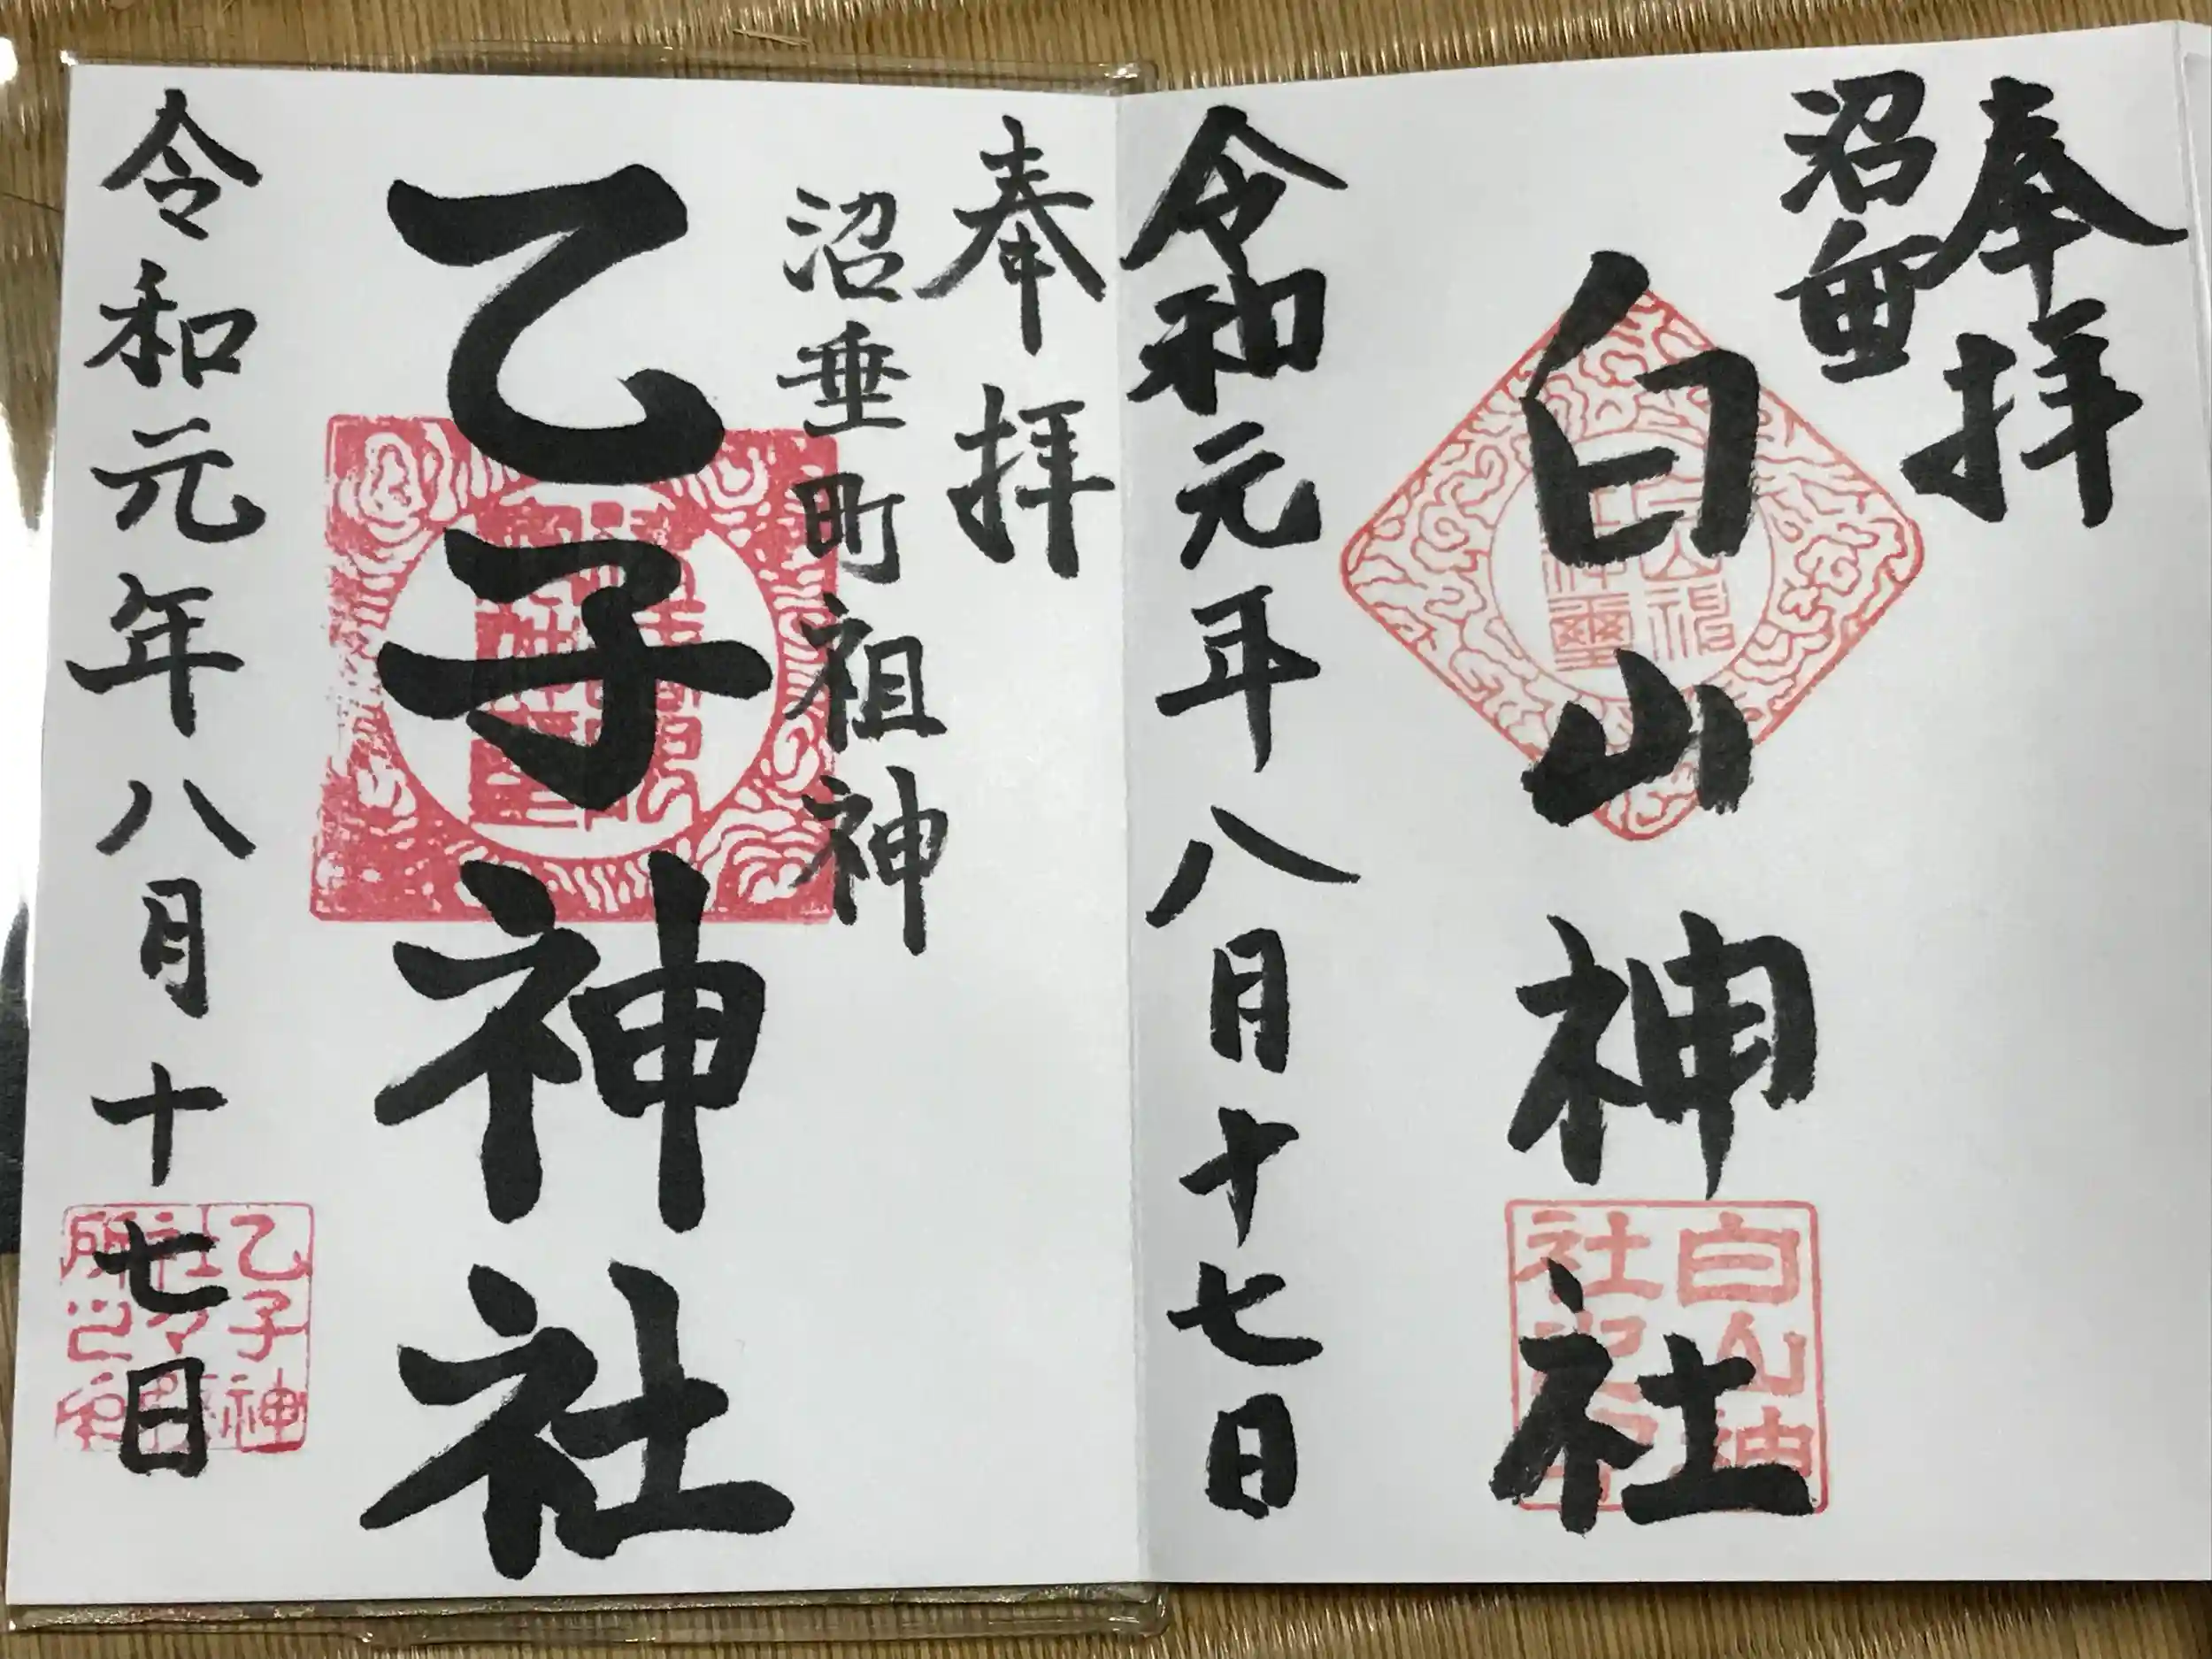 奉拝
沼垂
白山神社
令和元年八月十七日
奉拝
沼垂町祖神
乙子神社
令和元年八月十七日
乙子神